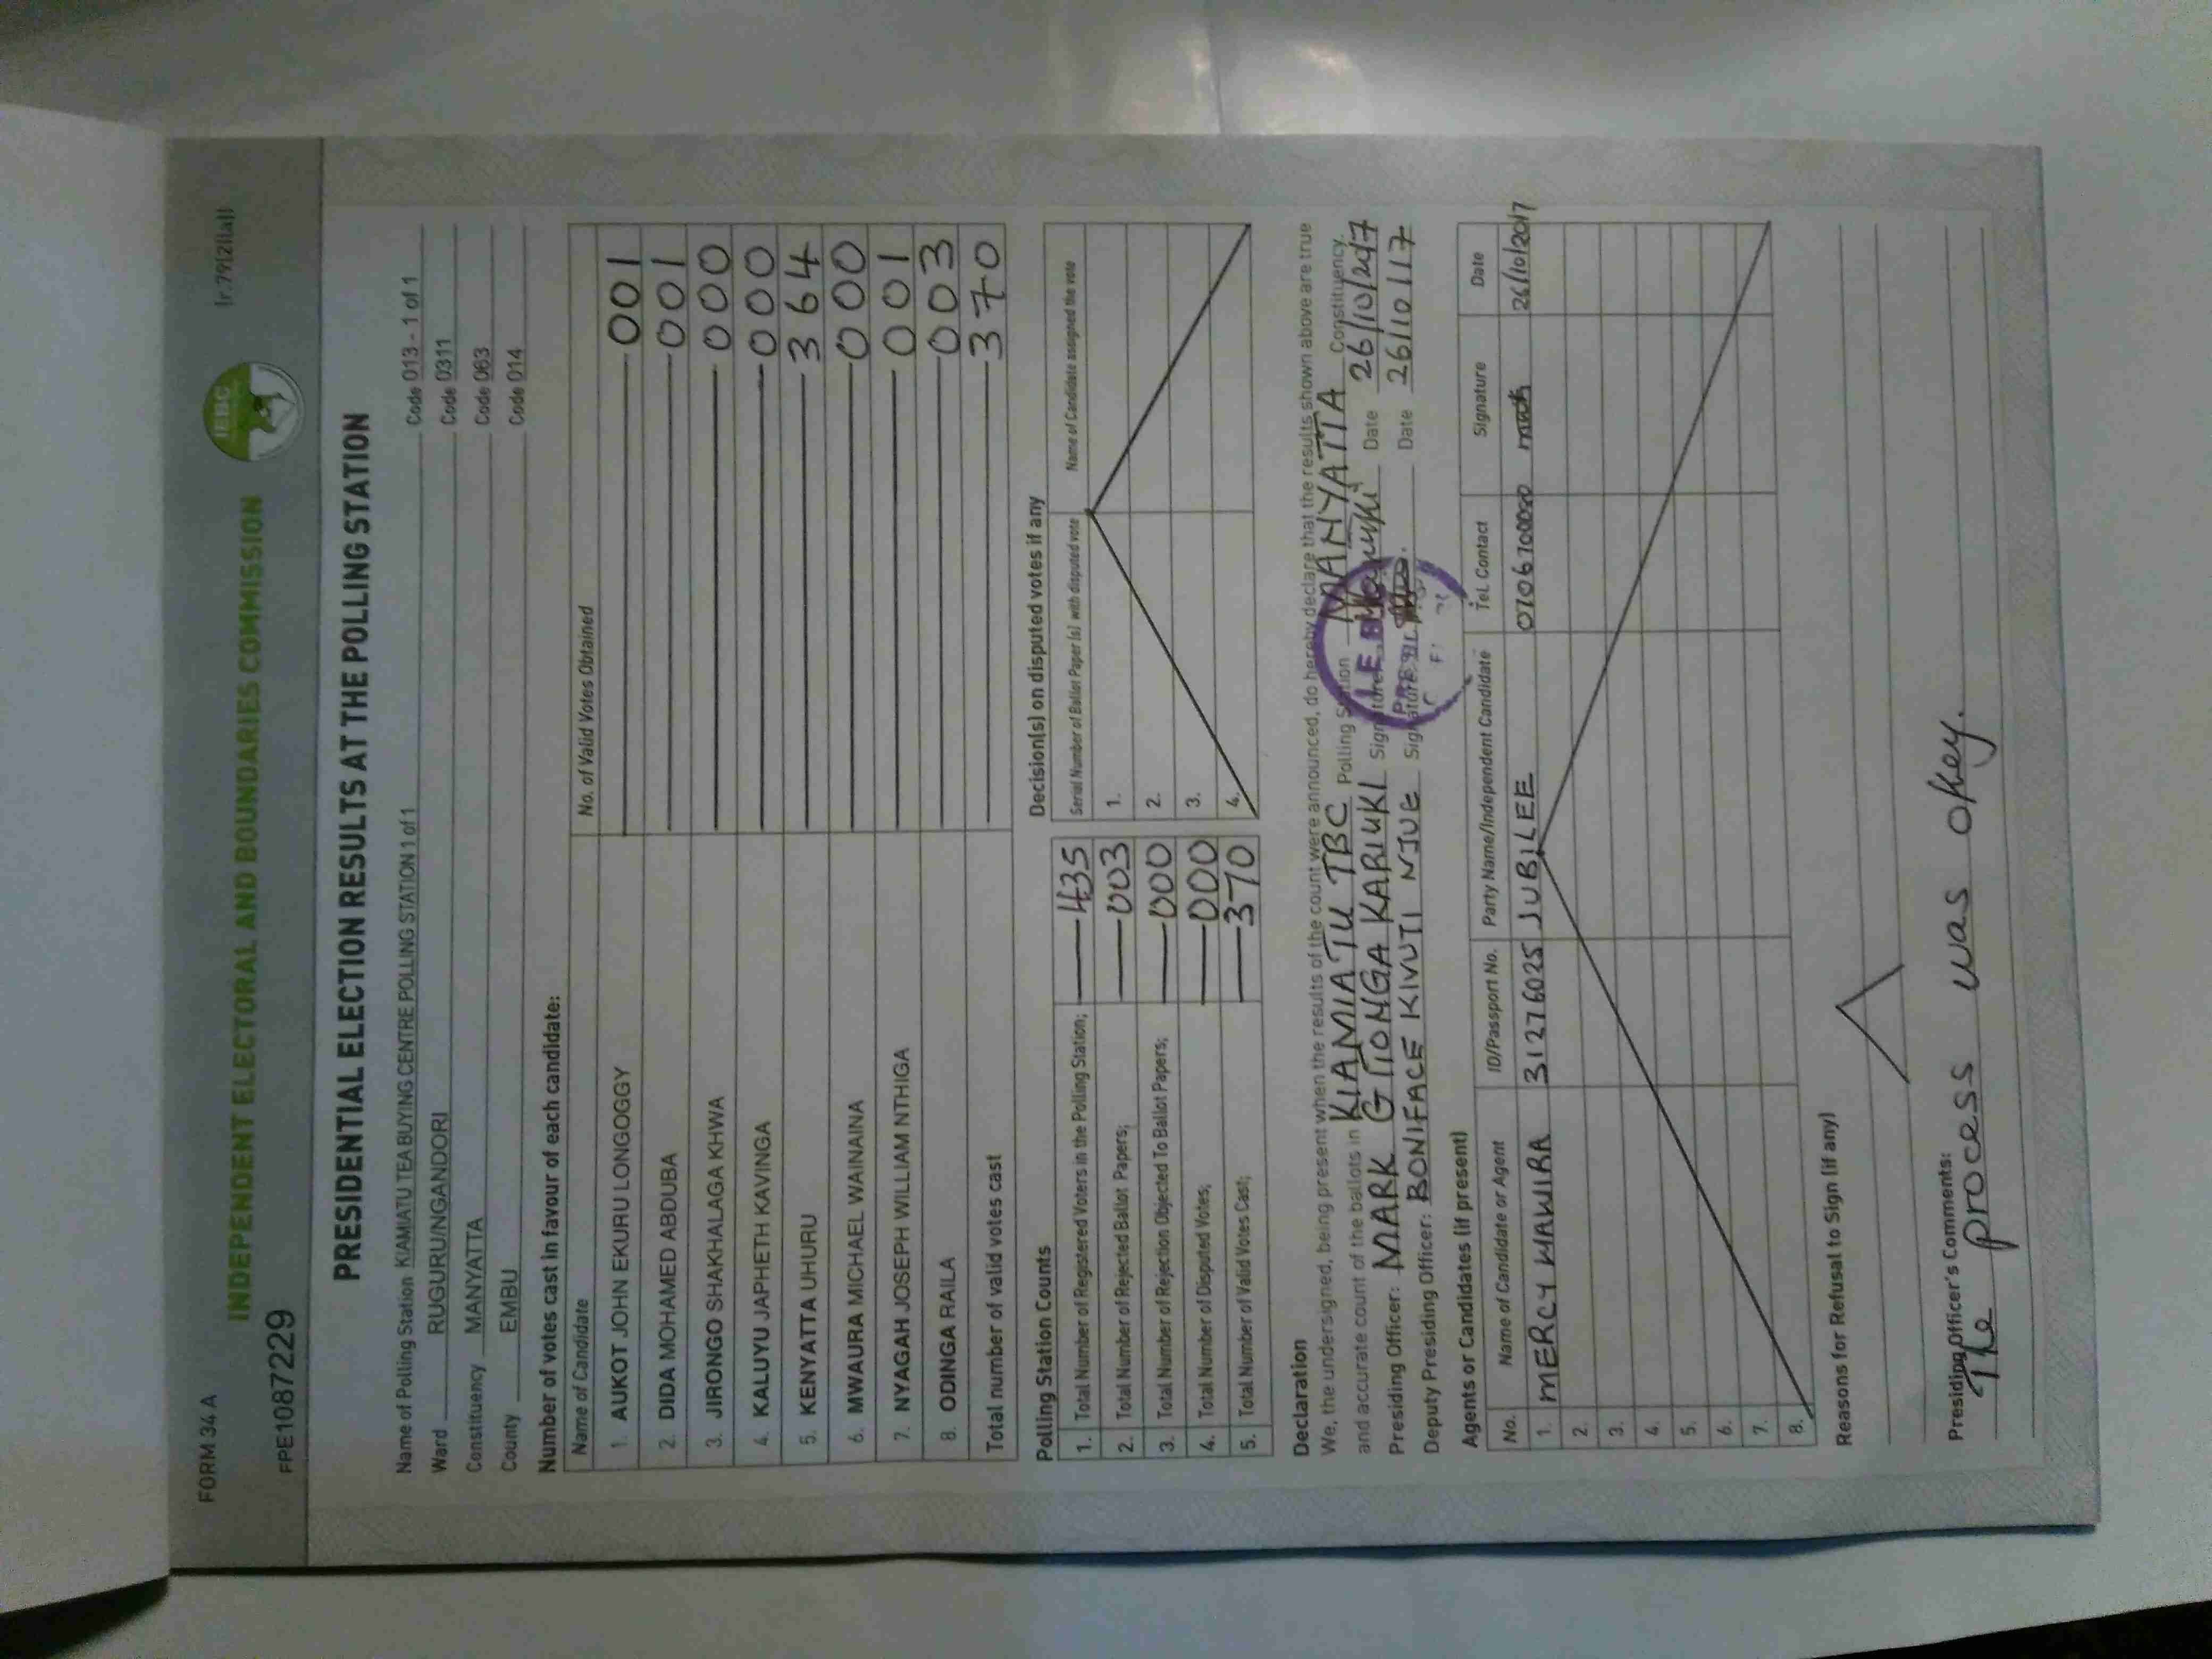 FORM 34 A
INDEPENDENT ELECTORAL AND BOUNDARIES COMMISSION
IEBC
(r.79(2)(a))
FPE1087229
PRESIDENTIAL ELECTION RESULTS AT THE POLLING STATION
Name of Polling Station KIAMIATU TEA BUYING CENTRE POLLING STATION 1 of 1 Code 013 - 1 of 1
Ward RUGURU/NGANDORI Code 0311
Constituency MANYATTA Code 063
County EMBU Code 014
Number of votes cast in favour of each candidate:
Name of Candidate No. of Valid Votes Obtained
1. AUKOT JOHN EKURU LONGOGGY 001
2. DIDA MOHAMED ABDUBA 001
3. JIRONGO SHAKHALAGA KHWA 000
4. KALUYU JAPHETH KAVINGA 000
5. KENYATTA UHURU 364
6. MWAURA MICHAEL WAINAINA 000
7. NYAGAH JOSEPH WILLIAM NTHIGA 001
8. ODINGA RAILA 003
Total number of valid votes cast 370
Polling Station Counts
1. Total Number of Registered Voters in the Polling Station; 435
2. Total Number of Rejected Ballot Papers; 003
3. Total Number of Rejection Objected To Ballot Papers; 000
4. Total Number of Disputed Votes; 000
5. Total Number of Valid Votes Cast; 370
Decision(s) on disputed votes if any
Serial Number of Ballot Paper (s) with disputed vote Name of Candidate assigned the vote
1.
2.
3.
4.
Declaration
We, the undersigned, being present when the results of the count were announced, do hereby declare that the results shown above are true
and accurate count of the ballots in KIAMIATU TBC Polling Station MANYATTA Constituency.
Presiding Officer: MARK GITONGA KARIUKI Signature Date 26/10/2017
Deputy Presiding Officer: BONIFACE KIVUTI NJUE Signature Date 26/10/17
Agents or Candidates (if present)
No. Name of Candidate or Agent ID/Passport No. Party Name/Independent Candidate Tel. Contact Signature Date
1. MERCY WAWIRA 31276025 JUBILEE 0706700080 26/10/2017
2.
3.
4.
5.
6.
7.
8.
Reasons for Refusal to Sign (if any)
Presiding Officer's Comments:
The process was okey.